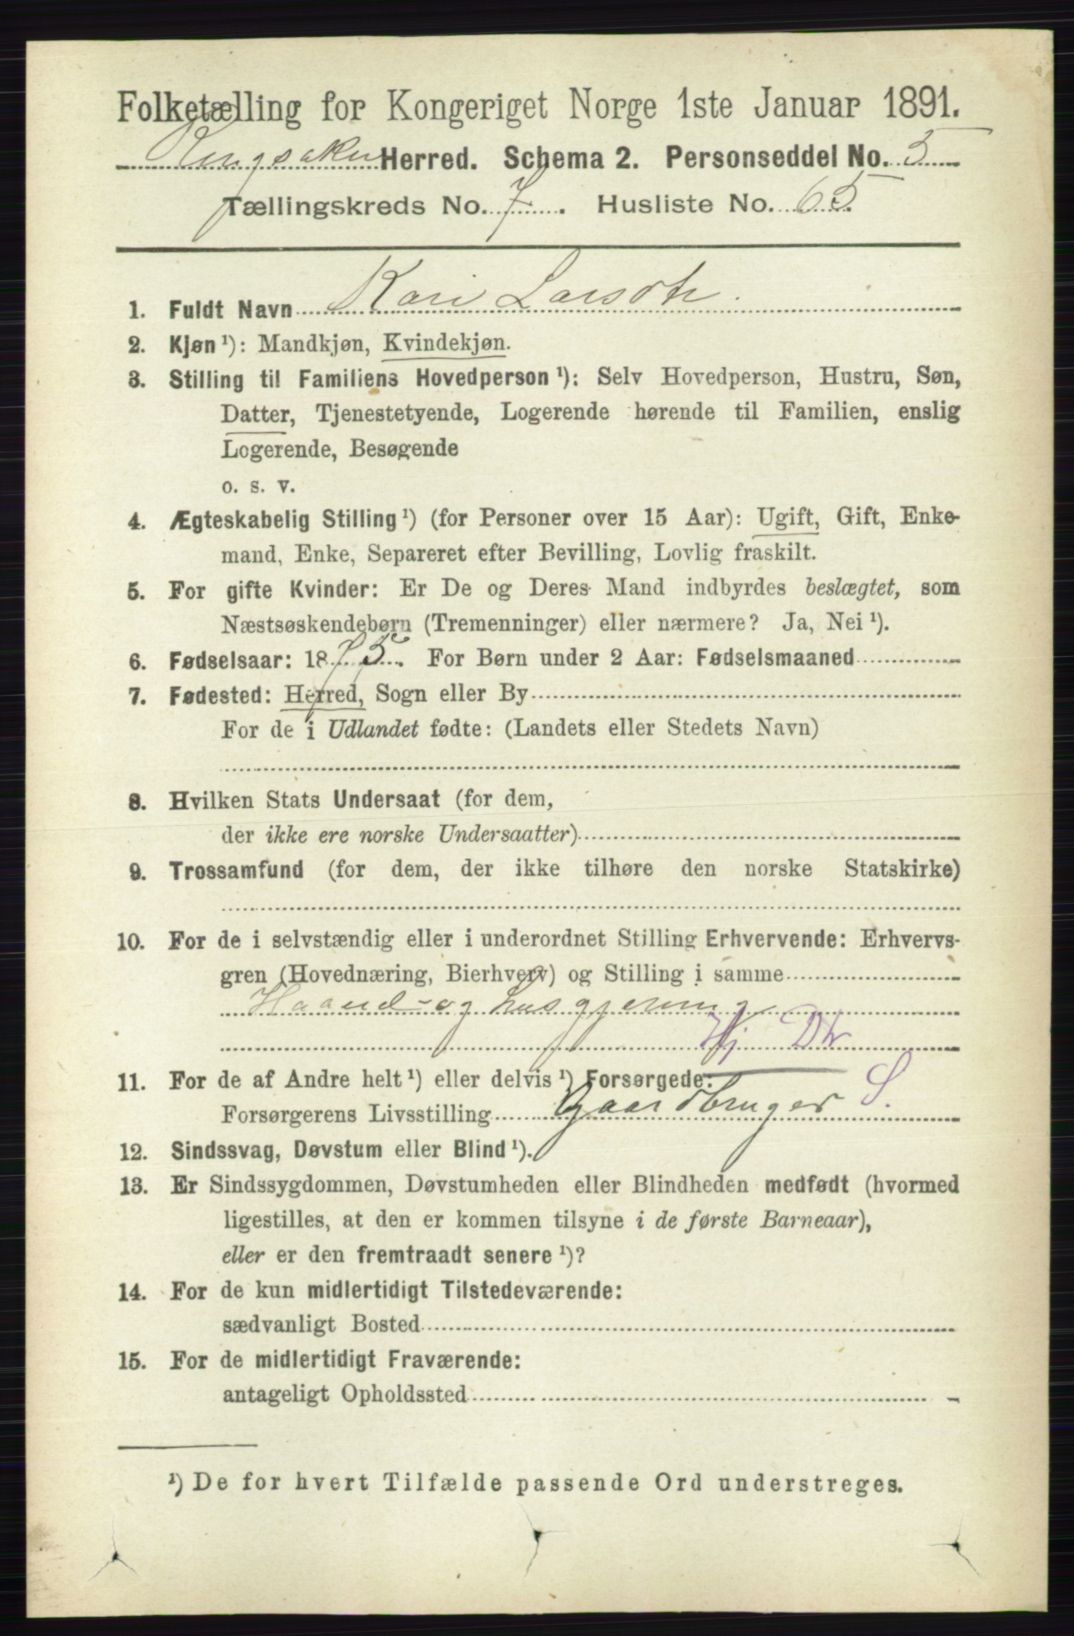 Folketælling for Kongeriget Norge 1ste Januar 1891.
Ringsaker Herred. Schema 2. Personseddel No. 5
Tællingskreds No. 7. Husliste No. 65.
1. Fuldt Navn Kari Larsdtr.
2. Kjøn ¹): Mandkjøn, Kvindekjøn.
3. Stilling til Familiens Hovedperson ¹): Selv Hovedperson, Hustru, Søn,
Datter, Tjenestetyende, Logerende hørende til Familien, enslig
Logerende, Besøgende
o. s. v.
4. Ægteskabelig Stilling ¹) (for Personer over 15 Aar): Ugift, Gift, Enke-
mand, Enke, Separeret efter Bevilling, Lovlig fraskilt.
5. For gifte Kvinder: Er De og Deres Mand indbyrdes beslægtet, som
Næstsøskendebørn (Tremenninger) eller nærmere? Ja, Nei ¹).
6. Fødselsaar: 1875. For Børn under 2 Aar: Fødselsmaaned
7. Fødested: Herred, Sogn eller By
For de i Udlandet fødte: (Landets eller Stedets Navn)
8. Hvilken Stats Undersaat (for dem,
der ikke ere norske Undersaatter)
9. Trossamfund (for dem, der ikke tilhøre den norske Statskirke)
10. For de i selvstændig eller i underordnet Stilling Erhvervende: Erhvervs-
gren (Hovednæring, Bierhverv) og Stilling i samme
Haand- og husgjerning
Hj Dtr
11. For de af Andre helt ¹) eller delvis ¹) Forsørgede:
Forsørgerens Livsstilling Gaardbruger S.
12. Sindssvag, Døvstum eller Blind ¹).
13. Er Sindssygdommen, Døvstumheden eller Blindheden medfødt (hvormed
ligestilles, at den er kommen tilsyne i de første Barneaar),
eller er den fremtraadt senere ¹)?
14. For de kun midlertidigt Tilstedeværende:
sædvanligt Bosted
15. For de midlertidigt Fraværende:
antageligt Opholdssted
¹) De for hvert Tilfælde passende Ord understreges.